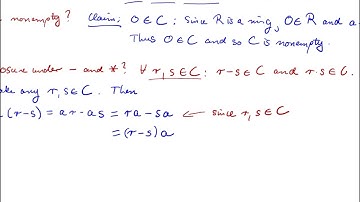 nonempty? Claim: 0 ∈ C; Since R is a ring, 0 ∈ R and a
Thus 0 ∈ C and so C is nonempty.
osure under - and *? ∀ r, s ∈ C: r-s ∈ C and r·s ∈ C.
ake any r, s ∈ C. Then
(r-s) = ar - as = ra - sa ← since r, s ∈ C
= (r-s)a